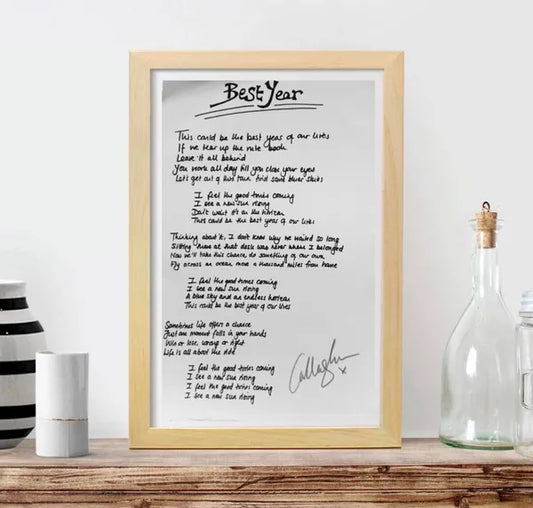 Best Year
This could be the best years of our lives
If we tear up the rule book
Leave it all behind
You work all day till you close your eyes
Let's get out of this town find some bluer skies
I feel the good times coming
I see a new sun rising
Don't want it's on the horizon
This could be the best years of our lives
Thinking about it, I don't know why we waited so long
Sitting there at that desk was never where I belonged
Now we'll take this chance, do something of our own
Fly across an ocean move a thousand miles from home
I feel the good times coming
I see a new sun rising
A blue sky and an endless horizon
This could be the best years of our lives
Sometimes life offers a chance
Just one moment falls in your hands
Win or lose, wrong or right
Life is all about the ride
I feel the good times coming
I see a new sun rising
I feel the good times coming
I see a new sun rising
Callaghan x